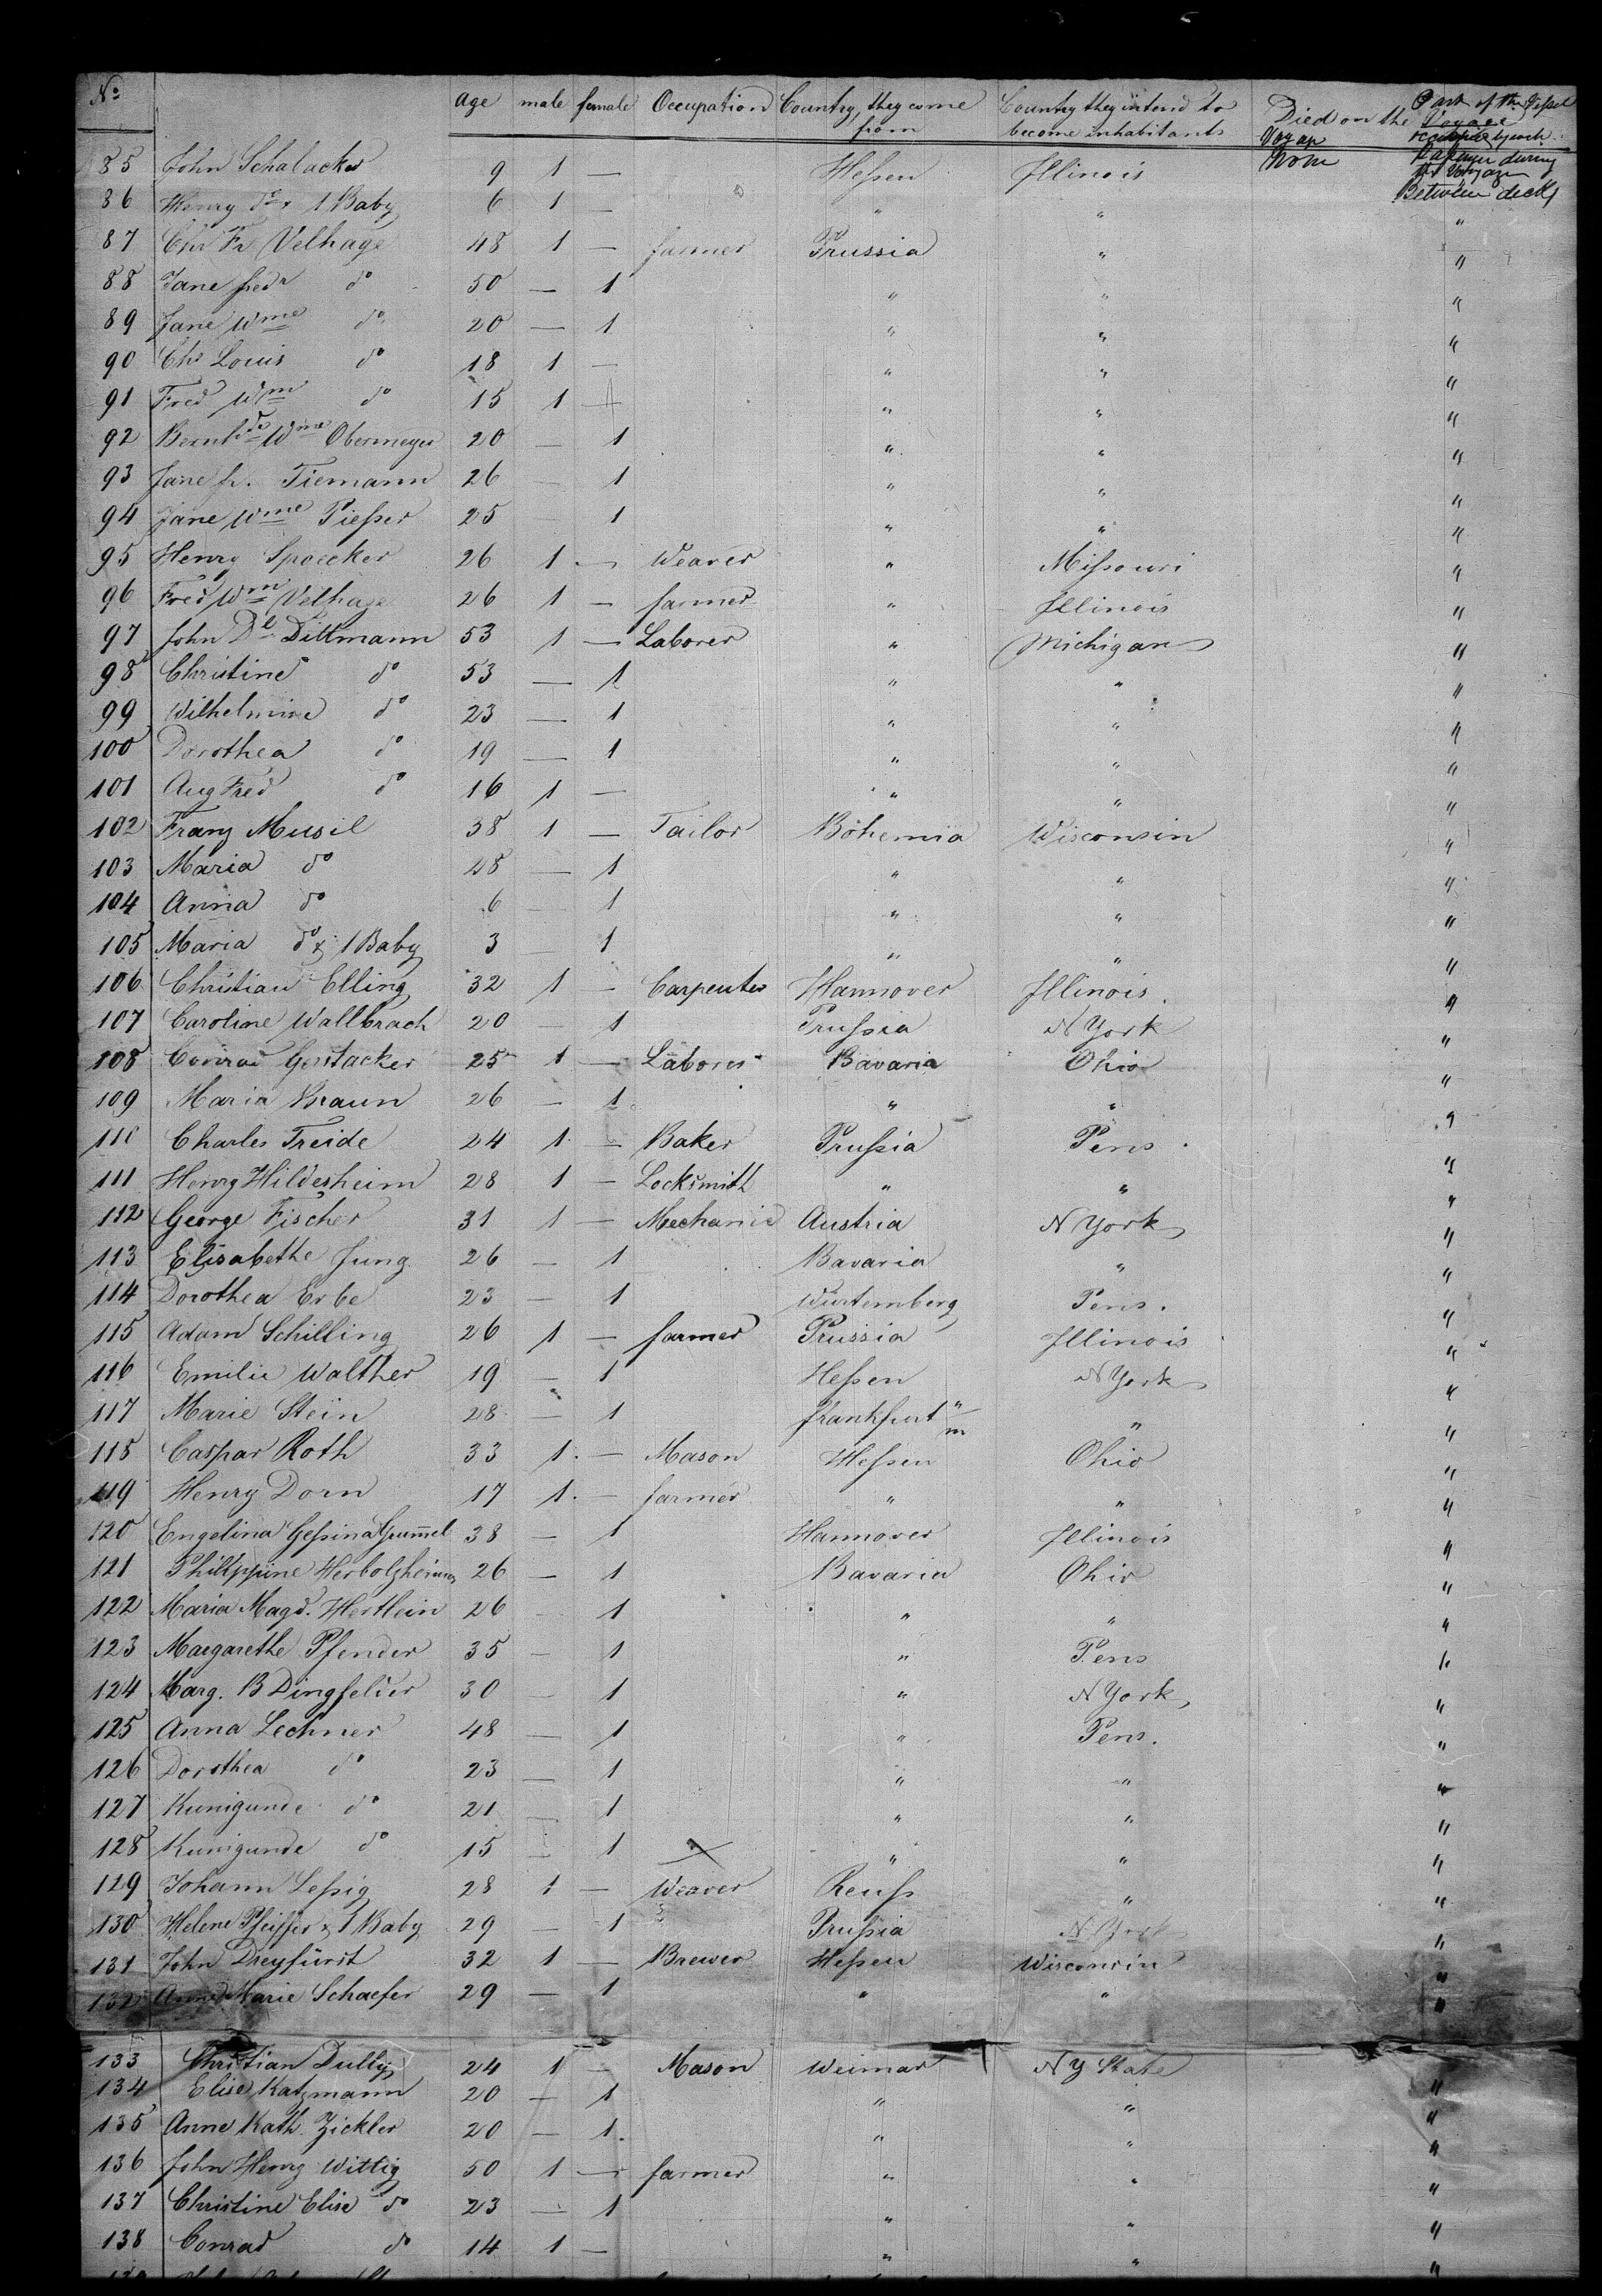 No Age male female Occupation Country they come from Country they intend to become inhabitants Died on the Voyage Part of the Vessel occupied by each Passenger during the Voyage
85 John Schalacker 9 1 — Heſsen Illinois None Between decks
86 Henry do & 1 Baby 6 1 — " " "
87 Chr Fr Velhage 48 1 — farmer Prussia " "
88 Jane fredr do 50 — 1 " " "
89 Jane Wme do 20 — 1 " " "
90 Chr Louis do 18 1 — " " "
91 Fred Wm do 15 1 — " " "
92 Bernhde Wme Obermeyer 20 — 1 " " "
93 Jane fr. Tiemann 26 — 1 " " "
94 Jane Wme Pieſser 25 1 " " "
95 Henry Spoecker 26 1 — Weaver " Miſsouri "
96 Fred Wm Velhage 26 1 — farmer " Illinois "
97 John Dl Dittmann 53 1 — Laborer " Michigan "
98 Christine do 53 — 1 " " "
99 Wilhelmine do 23 — 1 " " "
100 Dorothea do 19 — 1 " " "
101 Aug Fred do 16 1 — " " "
102 Franz Musil 38 1 — Tailor Bohemia Wisconsin "
103 Maria do 48 — 1 " " "
104 Anna do 6 — 1 " " "
105 Maria do & 1 Baby 3 — 1 " " "
106 Christian Elling 32 1 — Carpenter Hannover Illinois. "
107 Caroline Wallbrach 20 — 1 Pruſsia N York "
108 Conrad Gerstacker 25 1 — Laborer Bavaria Ohio "
109 Maria Braun 26 — 1 " " "
110 Charles Treide 24 1 — Baker Pruſsia Pens. "
111 Henry Hildesheim 28 1 — Locksmith " " "
112 George Fischer 31 1 — Mechanic Austria N York "
113 Elisabethe Jung 26 — 1 Bavaria " "
114 Dorothea Erbe 23 — 1 Würtemberg Pens. "
115 Adam Schilling 26 1 — farmer Prussia Illinois "
116 Emilie Walther 19 — 1 Heſsen N York "
117 Marie Stein 28 — 1 frankfurt a/m " "
118 Caspar Roth 33 1. — Mason Heſsen Ohio "
119 Henry Dorn 17 1. — farmer " " "
120 Engelina Geſsina Grum̄el 38 — 1 Hannover Illinois "
121 Philippine Herbolzheimer 26 — 1 Bavaria Ohio "
122 Maria Magd. Hertlein 26 — 1 " " "
123 Margarethe Pfender 35 — 1 " Pens "
124 Marg. B Dingfelder 30 — 1 " N York "
125 Anna Lechner 48 — 1 " Pens. "
126 Dorothea do 23 — 1 " " "
127 Kunigunde do 21 — 1 " " "
128 Kunigunde do 15 — 1 " " "
129 Johann Leſsig 28 1 — Weaver Reuſs " "
130 Helene Pfeiffer & 1 Baby 29 — 1 Pruſsia N York "
131 John Dreyfürst 32 1 — Brewer Heſsen Wisconsin "
132 Anne Marie Schaefer 29 — 1 " " "
133 Christian Dully 24 1 — Mason Weimar N Y State
134 Elise Katzmann 20 — 1 " " "
135 Anne Kath. Zickler 20 — 1. " " "
136 John Henry Wittig 50 1 — farmer " " "
137 Christine Elise do 23 — 1 " " "
138 Conrad do 14 1 — " " "